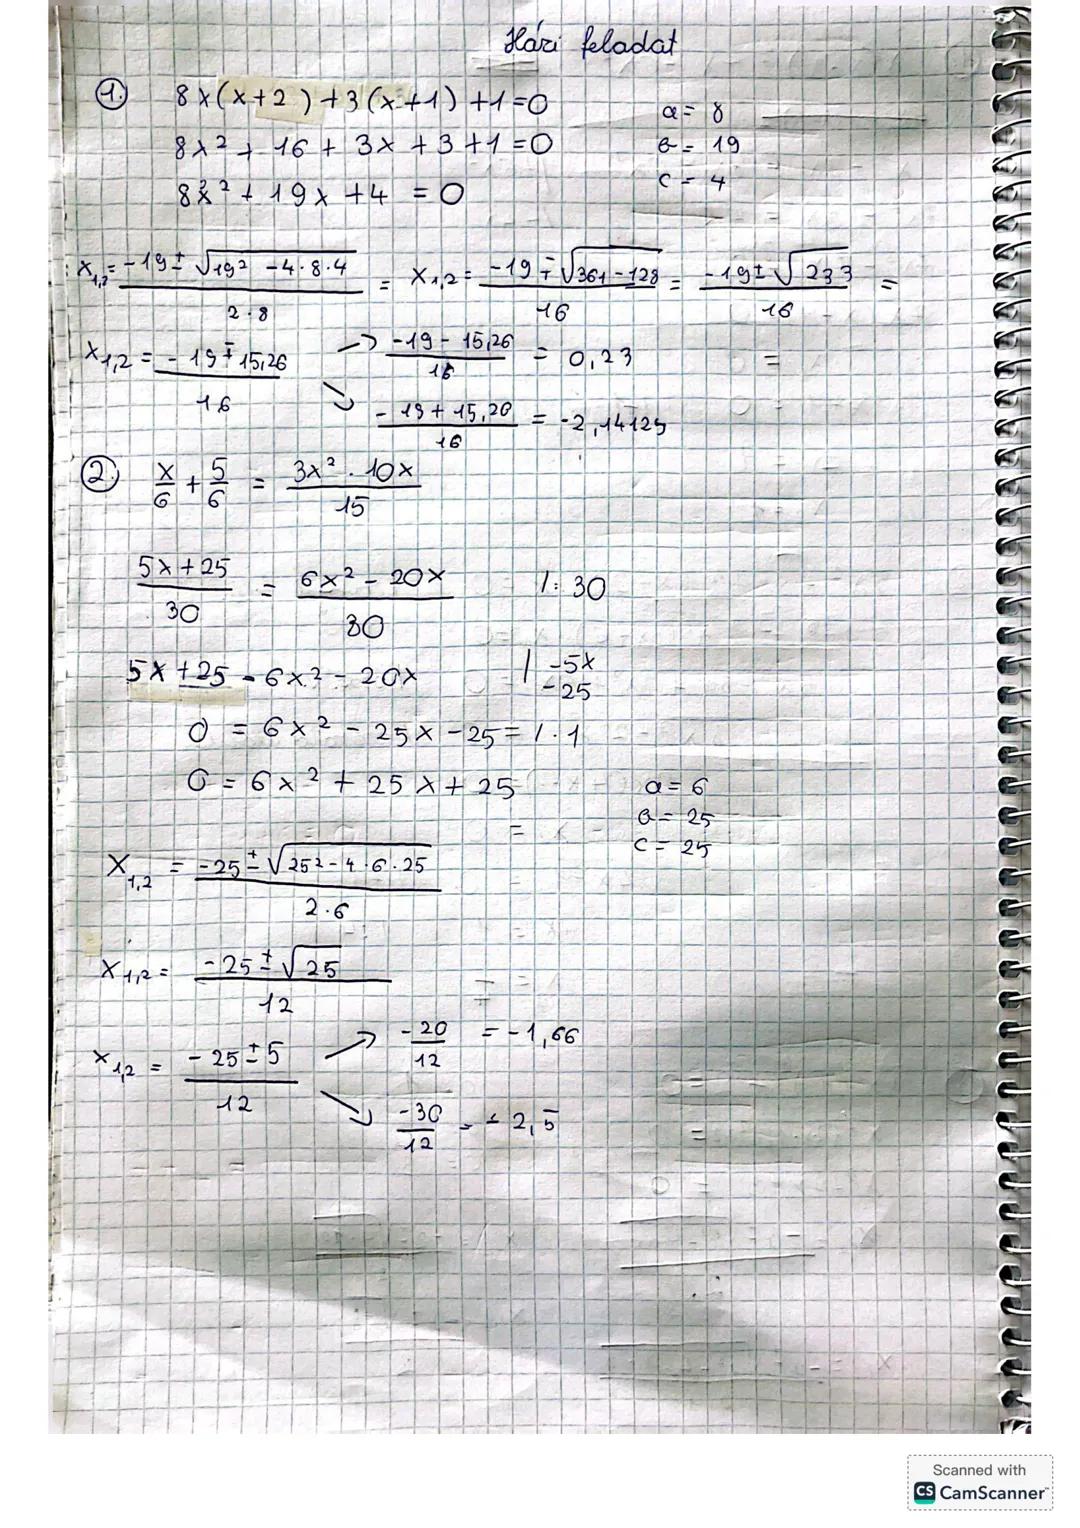 Házi feladat
1. 8x(x+2)+3(x+1)+1=0
a = 8
8x² + 16 + 3x + 3 + 1 = 0
b = 19
8x² + 19x + 4 = 0
c = 4
x₁,₂ = (-19 ± √(19² - 4·8·4)) / (2·8) = x₁,₂ = (-19 ∓ √(361 - 128)) / 16 = (-19 ± √233) / 16 =
x₁,₂ = (-19 ∓ 15,26) / 16 → (-19 - 15,26) / 16 = 0,23
↘ (-19 + 15,20) / 16 = -2,14125
2. x/6 + 5/6 = (3x² · 10x) / 15
(5x + 25) / 30 = (6x² - 20x) / 30 /: 30
5x + 25 = 6x² - 20x | -5x
-25
0 = 6x² - 25x - 25 = /·1
0 = 6x² + 25x + 25
a = 6
b = 25
c = 25
x₁,₂ = (-25 ± √(25² - 4·6·25)) / (2·6)
x₁,₂ = (-25 ± √25) / 12
x₁,₂ = (-25 ± 5) / 12 → -20/12 = -1,66
↘ -30/12 = - 2,5
Scanned with
CS CamScanner